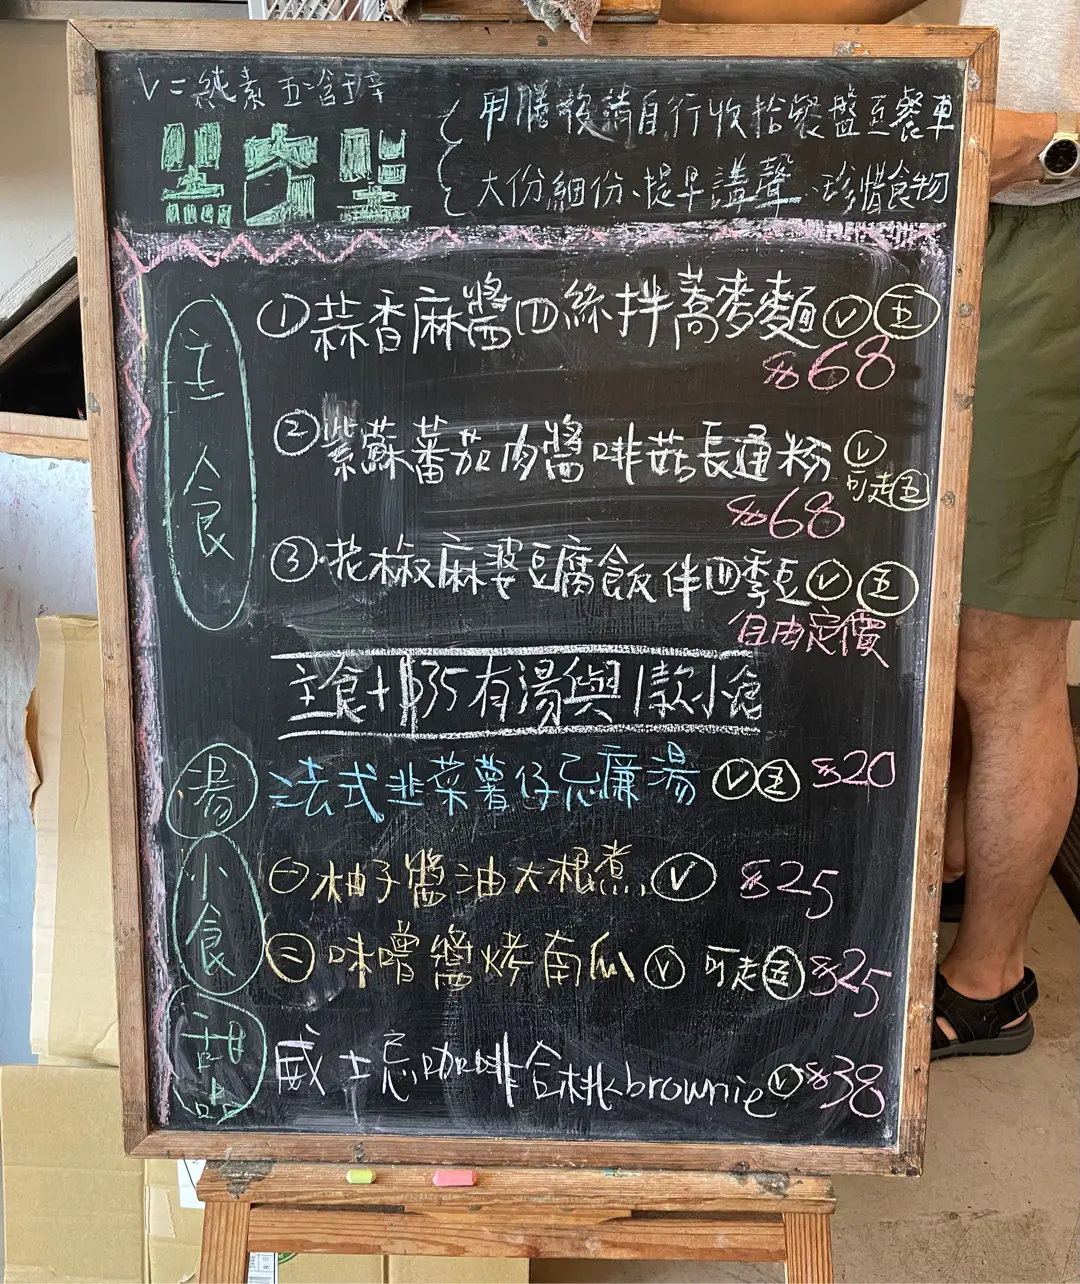 V = 純素 五=含五辛
用膳後請自行收拾餐盤至餐車
大份細份、提早講聲、珍惜食物
主食
① 蒜香麻醬四絲拌蕎麥麵 V 五
$68
② 紫蘇蕃茄肉醬啡菇長通粉 V 可走五
$68
③ 花椒麻婆豆腐飯伴四季豆 V 五
自由定價
主食+$35有湯與1款小食
湯
法式韭菜薯仔忌廉湯 V 五 $20
小食
㊀ 柚子醬油大根煮 V $25
㊁ 味噌醬烤南瓜 V 可走五 $25
甜品
威士忌咖啡合桃brownie V $38